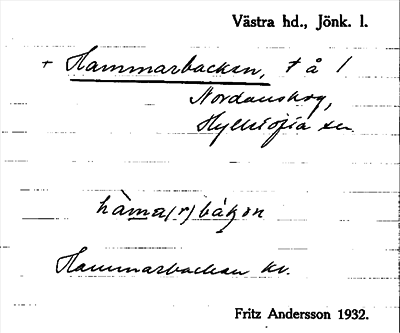 Västra hd., Jönk. l.
+ Hammarbacken, † å 1
Nordanskog,
Hylletofta sn
hàma(r)bákən
Hammarbackan kv.
Fritz Andersson 1932.